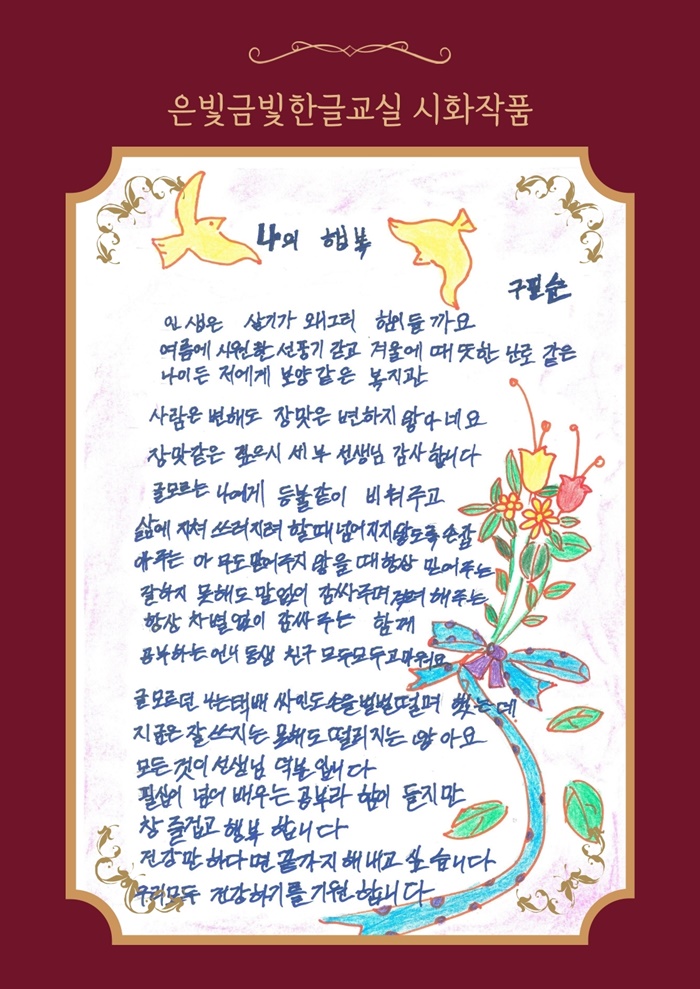 은빛금빛한글교실 시화작품
나의 행복
구필순
인생은 살기가 왜그리 힘이들까요
여름에 시원한 선풍기 같고 겨울에 때뜻한 난로 같은
나이든 저에게 보양같은 복지관
사람은 변해도 장맛은 변하지 않아네요
장맛같은 깊으시 세부 선생님 감사합니다
글모르는 나에게 등불같이 비춰주고
삶에 지쳐 쓰러지려 할때 넘어지지않도록 손잡
아주는 아무도 믿어주지 않을 때 항상 믿어주는
잘하지 못해도 말없이 감싸주며 격려해주는
항상 차별없이 감싸주는 함께
공부하는 언니 동생 친구 모두모두고마워요
글모르던 나는 택배 싸인도 손을 벌벌 떨며 썼는데
지금은 잘쓰지는 못해도 떨리지는 않아요
모든 것이 선생님 덕분입니다
필십이 넘어 배우는 공부라 힘이 들지만
참 즐겁고 행복 합니다
건강만 하다면 끝까지 해내고 싶습니다
우리모두 건강하기를 기원합니다